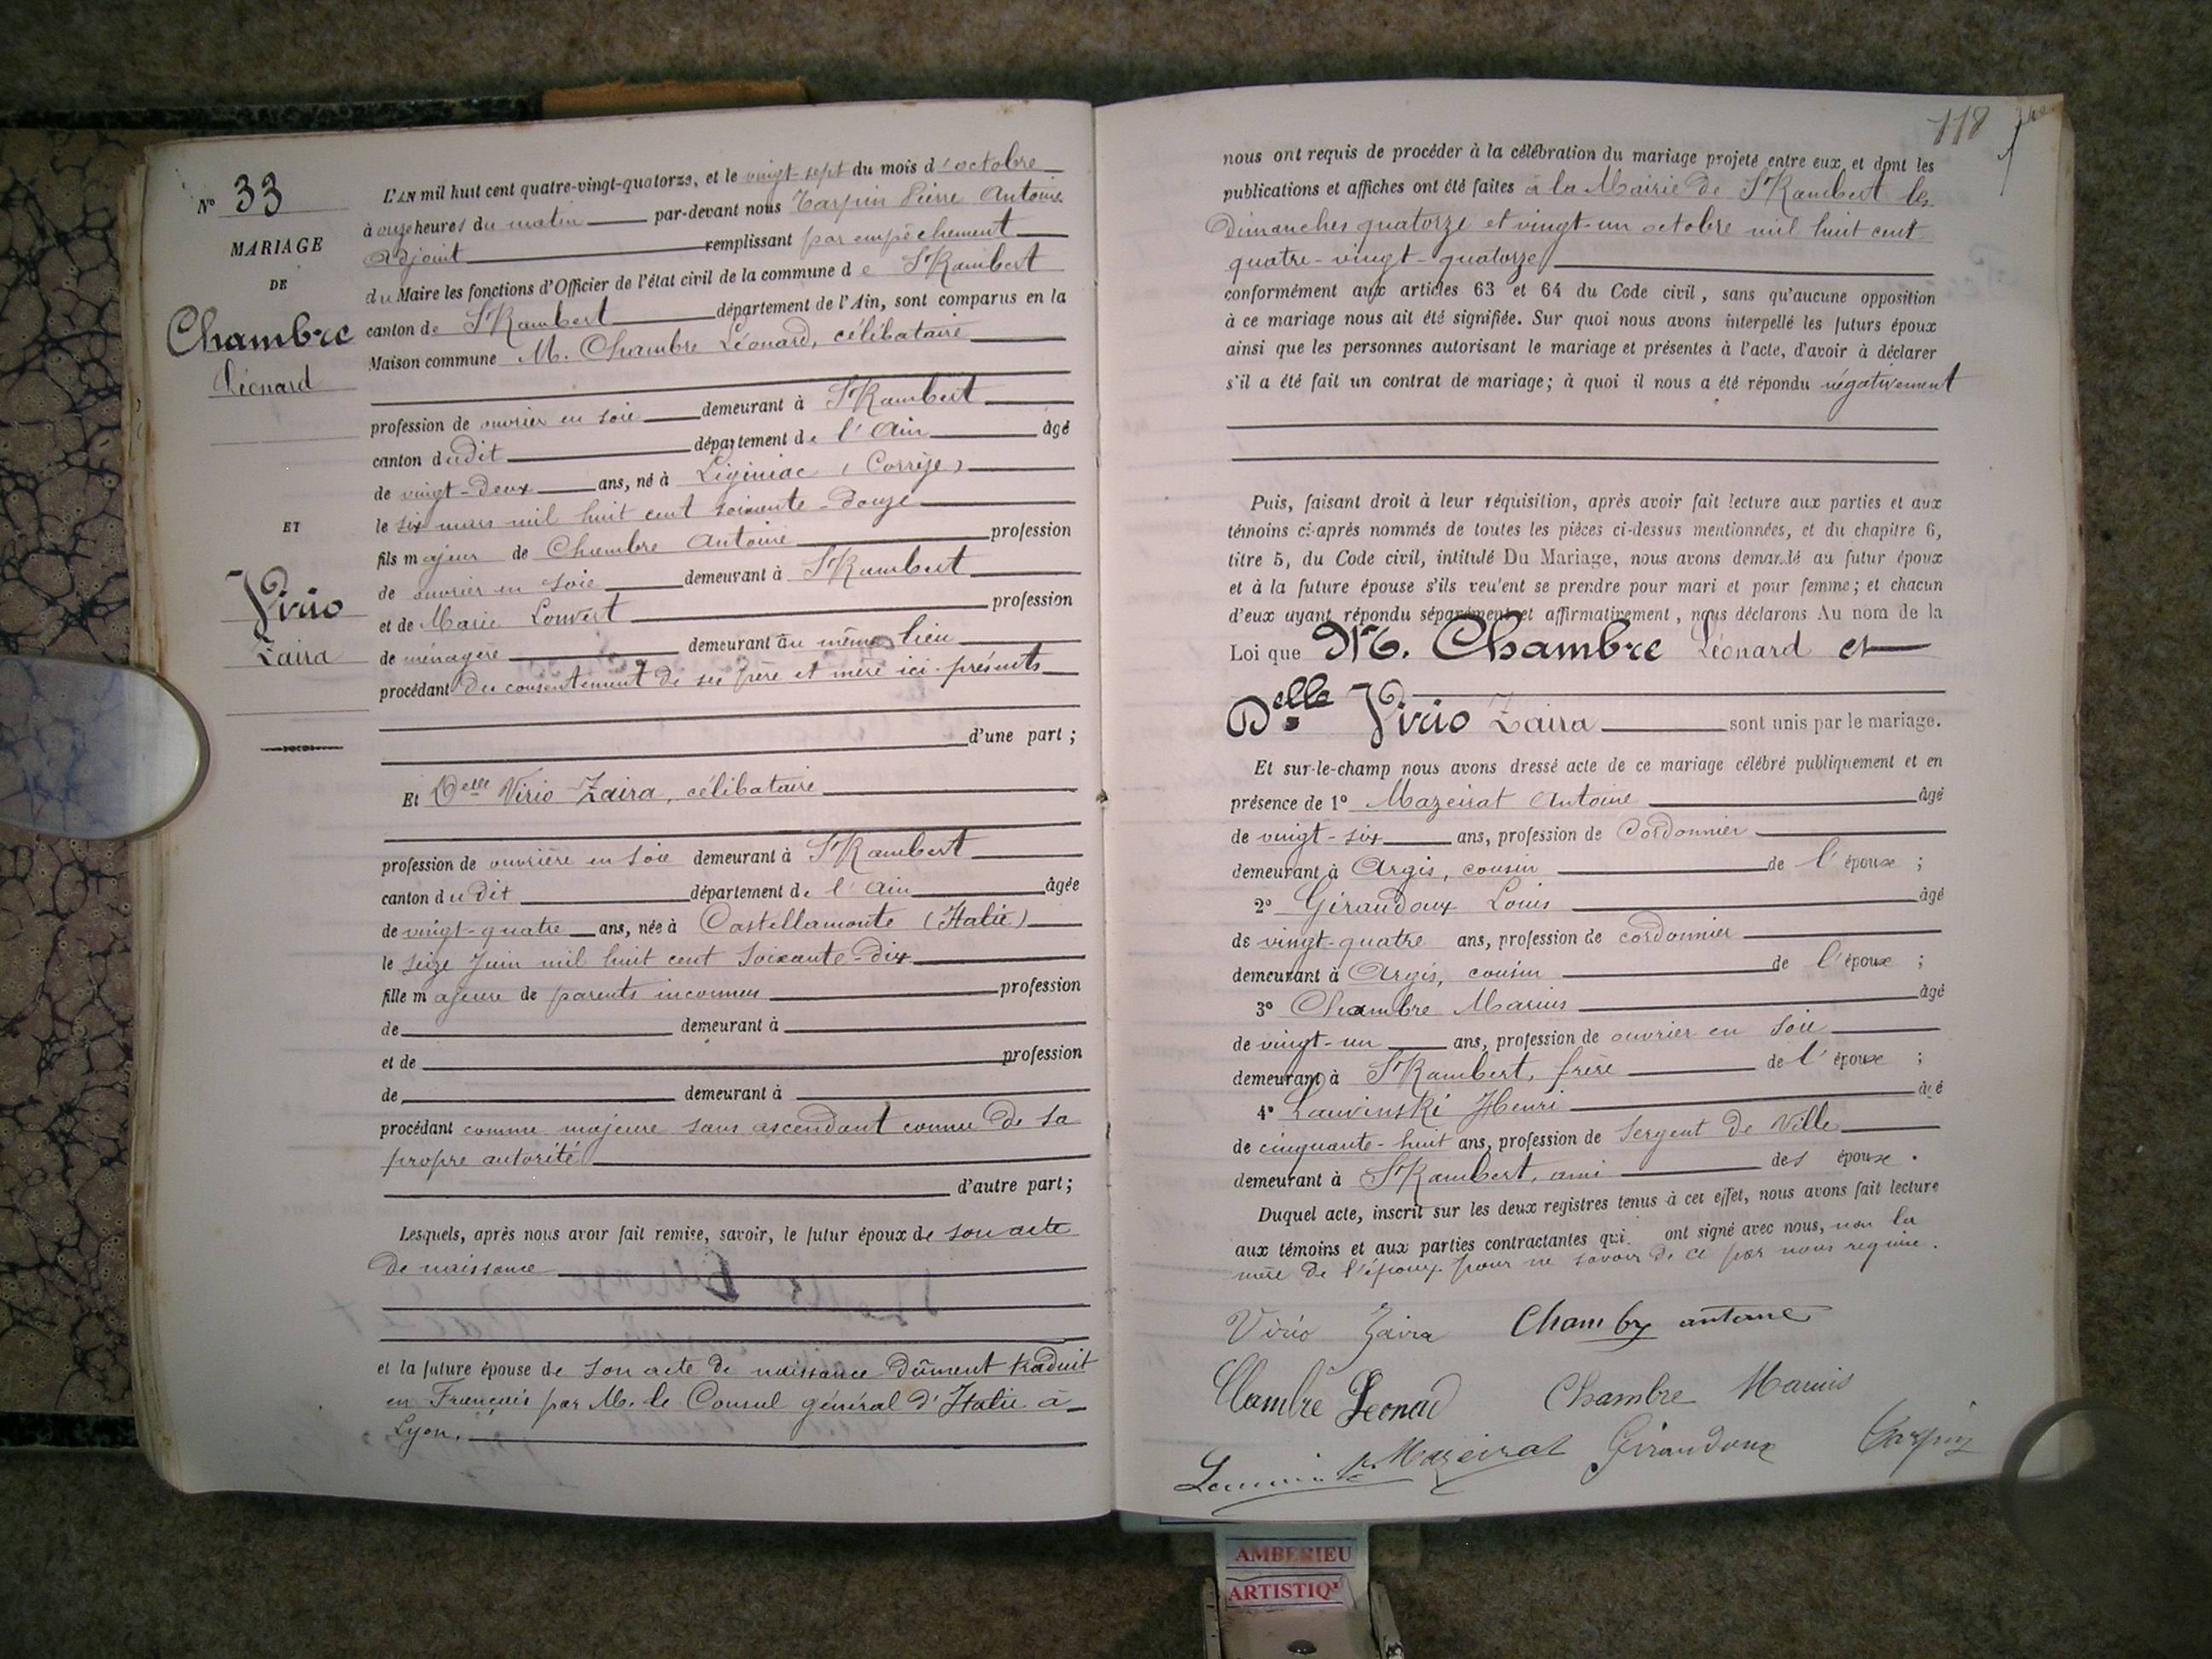 N° 33
MARIAGE
DE
Chambre
Léonard
ET
Virio
Zaira
L'AN mil huit cent quatre-vingt-quatorze, et le vingt-sept du mois d'octobre
à onze heures du matin par-devant nous Tarpin Pierre Antoine
adjoint remplissant par empêchement
du Maire les fonctions d'Officier de l'état civil de la commune de St Rambert
canton de St Rambert département de l'Ain, sont comparus en la
Maison commune M. Chambre Léonard, célibataire
profession de ouvrier en soie demeurant à St Rambert
canton dudit département de l'Ain âgé
de vingt-deux ans, né à Liginiac (Corrèze)
le six mars mil huit cent soixante-douze
fils majeur de Chambre Antoine profession
de ouvrier en soie demeurant à St Rambert
et de Marie Louvert profession
de ménagère demeurant au même lieu
procédant du consentement de ses père et mère ici présents
d'une part ;
Et Delle Virio Zaira, célibataire
profession de ouvrière en soie demeurant à St Rambert
canton dudit département de l'Ain âgée
de vingt-quatre ans, née à Castellamonte (Italie)
le seize Juin mil huit cent soixante-dix
fille majeure de parents inconnus profession
de demeurant à
et de profession
de demeurant à
procédant comme majeure sans ascendant connu de sa
propre autorité
d'autre part ;
Lesquels, après nous avoir fait remise, savoir, le futur époux de son acte
de naissance
et la future épouse de son acte de naissance dûment traduit
en Français par M. le Consul général d'Italie à
Lyon.
118
nous ont requis de procéder à la célébration du mariage projeté entre eux, et dont les
publications et affiches ont été faites à la Mairie de St Rambert les
dimanches quatorze et vingt-un octobre mil huit cent
quatre-vingt-quatorze
conformément aux articles 63 et 64 du Code civil, sans qu'aucune opposition
à ce mariage nous ait été signifiée. Sur quoi nous avons interpellé les futurs époux
ainsi que les personnes autorisant le mariage et présentes à l'acte, d'avoir à déclarer
s'il a été fait un contrat de mariage; à quoi il nous a été répondu négativement
Puis, faisant droit à leur réquisition, après avoir fait lecture aux parties et aux
témoins ci-après nommés de toutes les pièces ci-dessus mentionnées, et du chapitre 6,
titre 5, du Code civil, intitulé Du Mariage, nous avons demandé au futur époux
et à la future épouse s'ils veulent se prendre pour mari et pour femme; et chacun
d'eux ayant répondu séparément et affirmativement, nous déclarons Au nom de la
Loi que M. Chambre Léonard et
Delle Virio Zaira sont unis par le mariage.
Et sur-le-champ nous avons dressé acte de ce mariage célébré publiquement et en
présence de 1° Mazeirat Antoine âgé
de vingt-six ans, profession de Cordonnier
demeurant à Argis, cousin de l'époux ;
2° Giraudoux Louis âgé
de vingt-quatre ans, profession de cordonnier
demeurant à Argis, cousin de l'époux ;
3° Chambre Marius âgé
de vingt-un ans, profession de ouvrier en soie
demeurant à St Rambert, frère de l'époux ;
4° Lauvinski Henri âgé
de cinquante-huit ans, profession de Sergent de Ville
demeurant à St Rambert, ami des époux.
Duquel acte, inscrit sur les deux registres tenus à cet effet, nous avons fait lecture
aux témoins et aux parties contractantes qui ont signé avec nous, non la
mère de l'époux pour ne savoir de ce par nous requise.
Virio Zaira Chambr antoine
Chambre Leonard Chambre Marius
Mazeirat Giraudoux Tarpin
AMBERIEU
ARTISTIQ